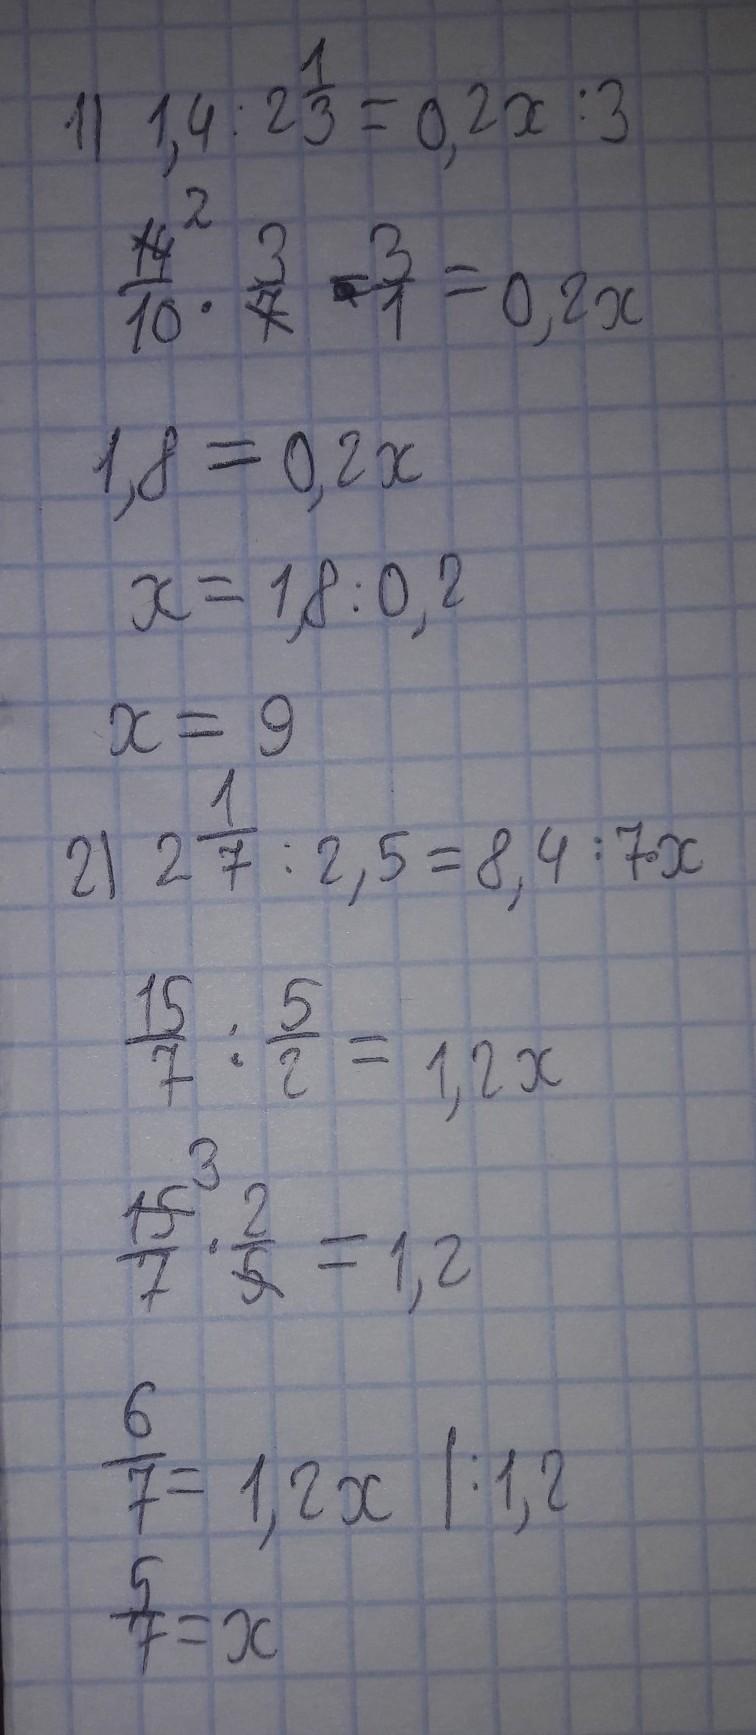 1) 1,4 : 2 1/3 = 0,2x : 3
14/10 ² · 3/7 · 3/1 = 0,2x
1,8 = 0,2x
x = 1,8 : 0,2
x = 9
2) 2 1/7 : 2,5 = 8,4 : 7·x
15/7 : 5/2 = 1,2x
15/7 ³ · 2/5 = 1,2
6/7 = 1,2x |: 1,2
5/7 = x